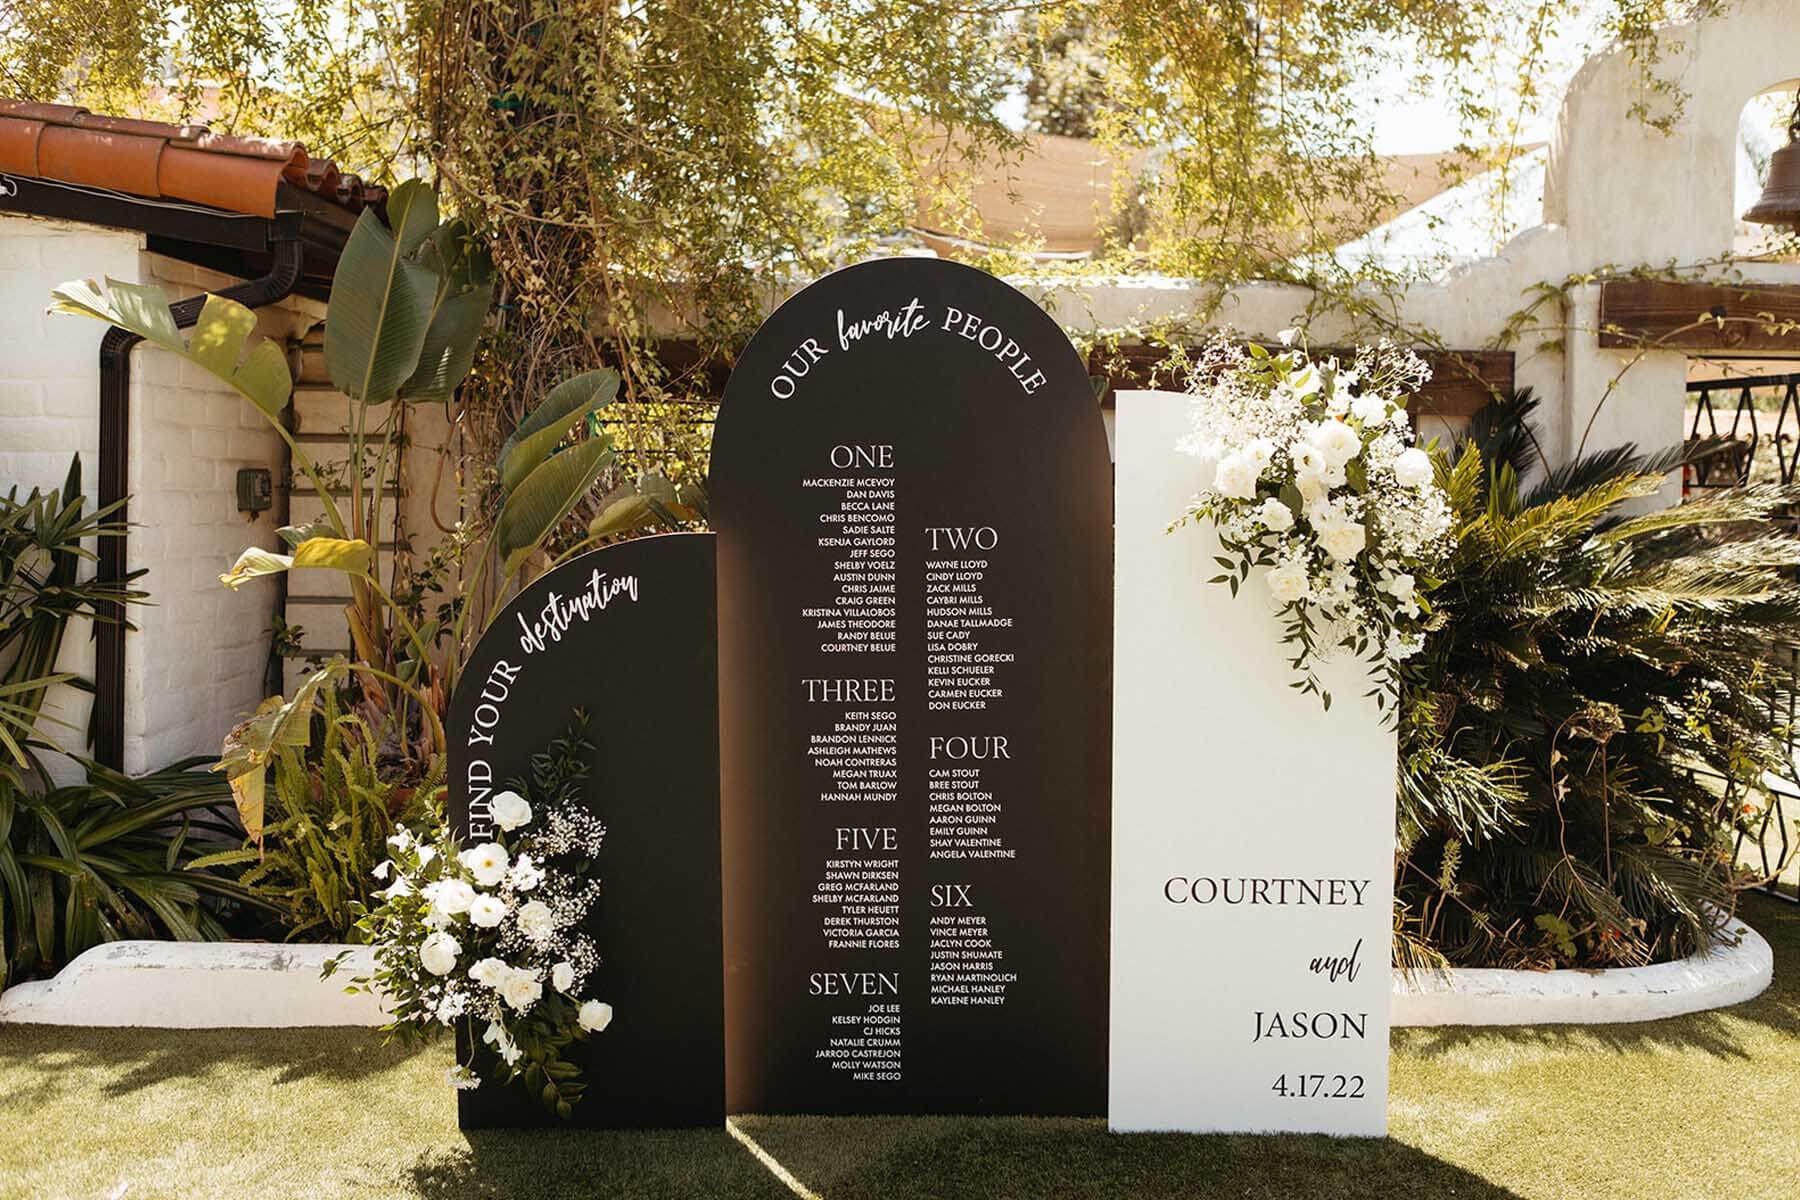 FIND YOUR destination
OUR favorite PEOPLE
ONE
MACKENZIE MCEVOY
DAN DAVIS
BECCA LANE
CHRIS BENCOMO
SADIE SALTE
KSENJA GAYLORD
JEFF SEGO
SHELBY VOELZ
AUSTIN DUNN
CHRIS JAIME
CRAIG GREEN
KRISTINA VILLALOBOS
JAMES THEODORE
RANDY BELUE
COURTNEY BELUE
TWO
WAYNE LLOYD
CINDY LLOYD
ZACK MILLS
CAYBRI MILLS
HUDSON MILLS
DANAE TALLMADGE
SUE CADY
LISA DOBRY
CHRISTINE GORECKI
KELLI SCHUELER
KEVIN EUCKER
CARMEN EUCKER
DON EUCKER
THREE
KEITH SEGO
BRANDY JUAN
BRANDON LENNICK
ASHLEIGH MATHEWS
NOAH CONTRERAS
MEGAN TRUAX
TOM BARLOW
HANNAH MUNDY
FOUR
CAM STOUT
BREE STOUT
CHRIS BOLTON
MEGAN BOLTON
AARON GUINN
EMILY GUINN
SHAY VALENTINE
ANGELA VALENTINE
FIVE
KIRSTYN WRIGHT
SHAWN DIRKSEN
GREG MCFARLAND
SHELBY MCFARLAND
TYLER HEUETT
DEREK THURSTON
VICTORIA GARCIA
FRANNIE FLORES
SIX
ANDY MEYER
VINCE MEYER
JACLYN COOK
JUSTIN SHUMATE
JASON HARRIS
RYAN MARTINOLICH
MICHAEL HANLEY
KAYLENE HANLEY
SEVEN
JOE LEE
KELSEY HODGIN
CJ HICKS
NATALIE CRUMM
JARROD CASTREJON
MOLLY WATSON
MIKE SEGO
COURTNEY
and
JASON
4.17.22